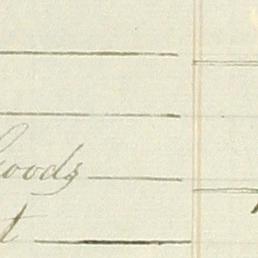 Goods
t